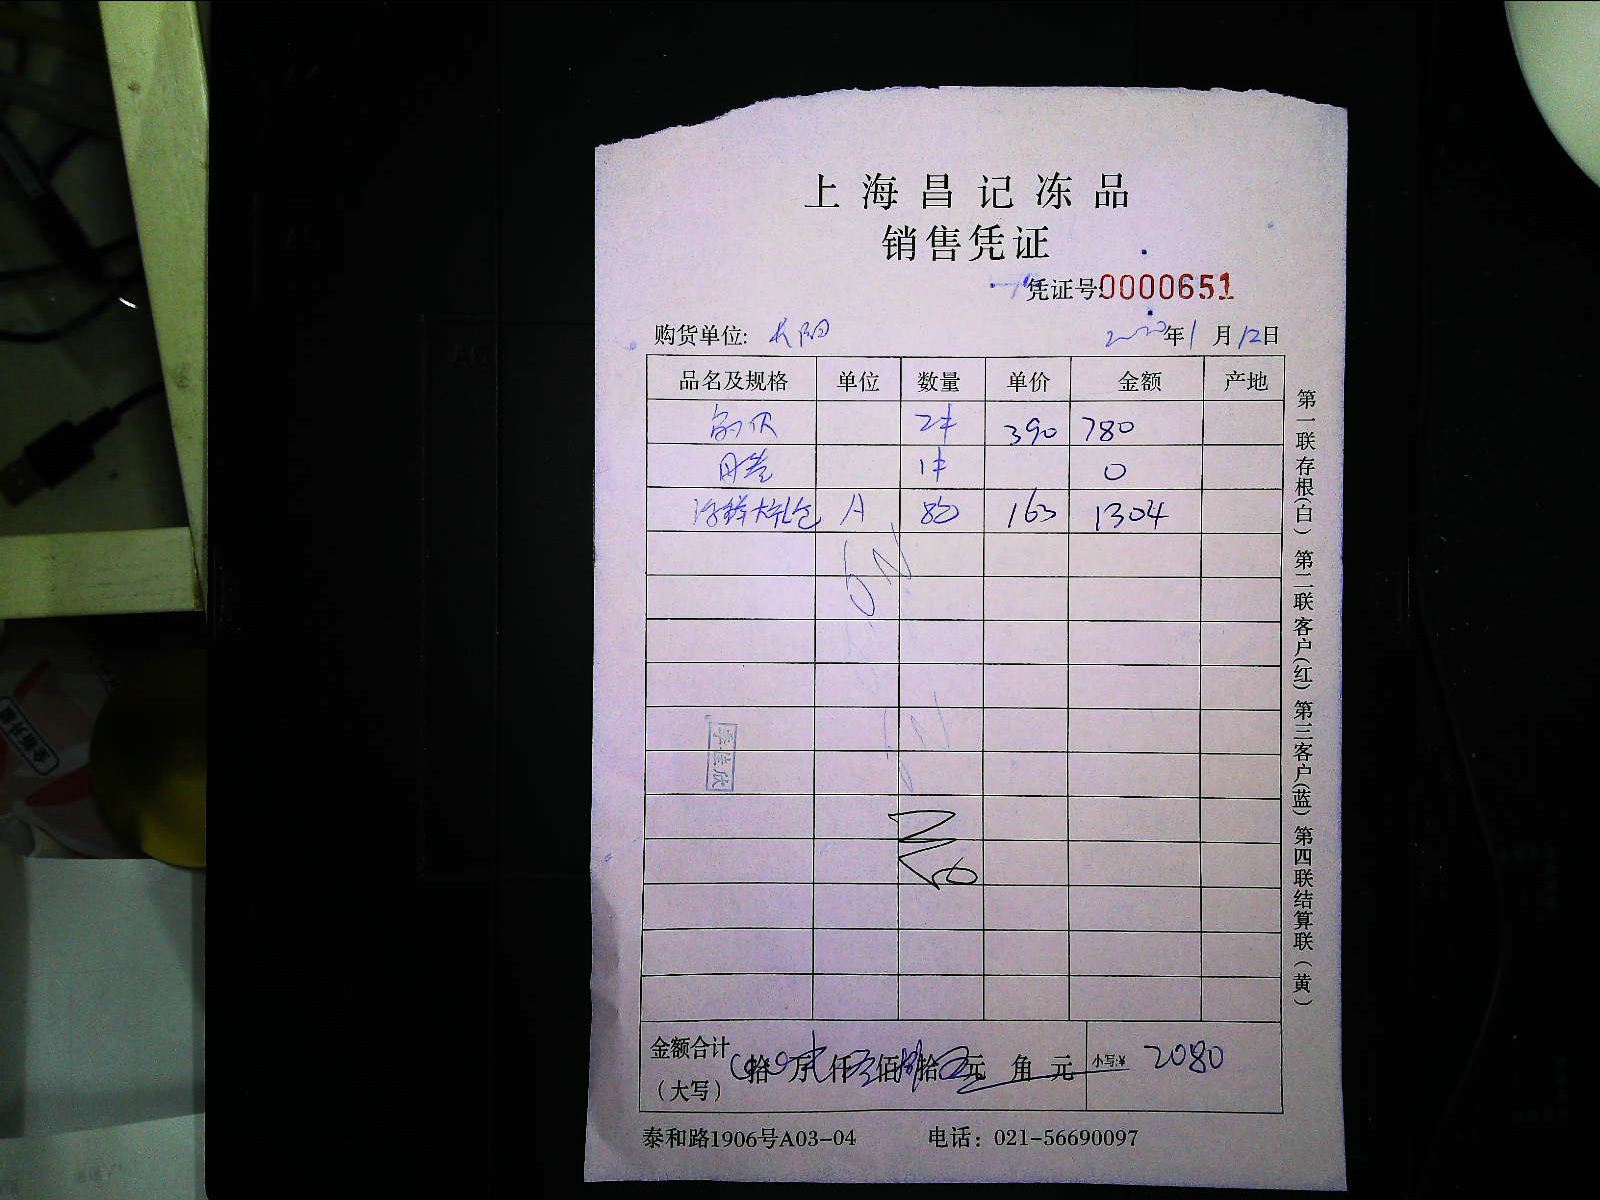 上海昌记冻品
销售凭证
凭证号:0000651
购货单位: 长阳 2020年1月12日
品名及规格 单位 数量 单价 金额 产地
2件 390 780
1件 0
大礼包 A 8 163 1304
季佳欣
金额合计 (大写) 拾 万 仟 佰 拾 元 角 元 小写:¥ 2080
泰和路1906号A03-04 电话：021-56690097
第一联存根(白) 第二联客户(红) 第三客户(蓝) 第四联结算联(黄)